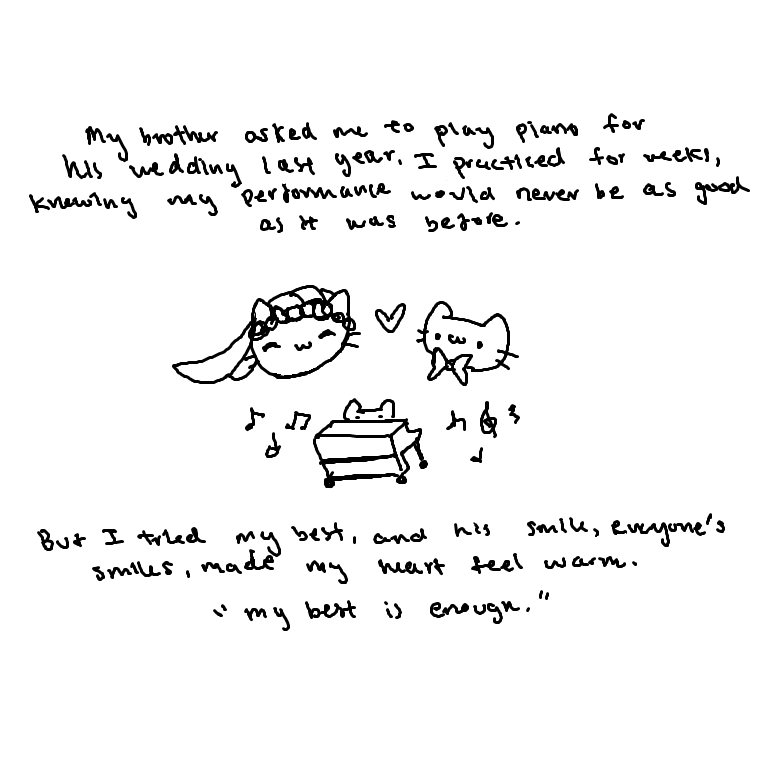 My brother asked me to play piano for
his wedding last year. I practiced for weeks,
knowing my performance would never be as good
as it was before.
But I tried my best, and his smile, everyone's
smiles, made my heart feel warm.
"my best is enough."